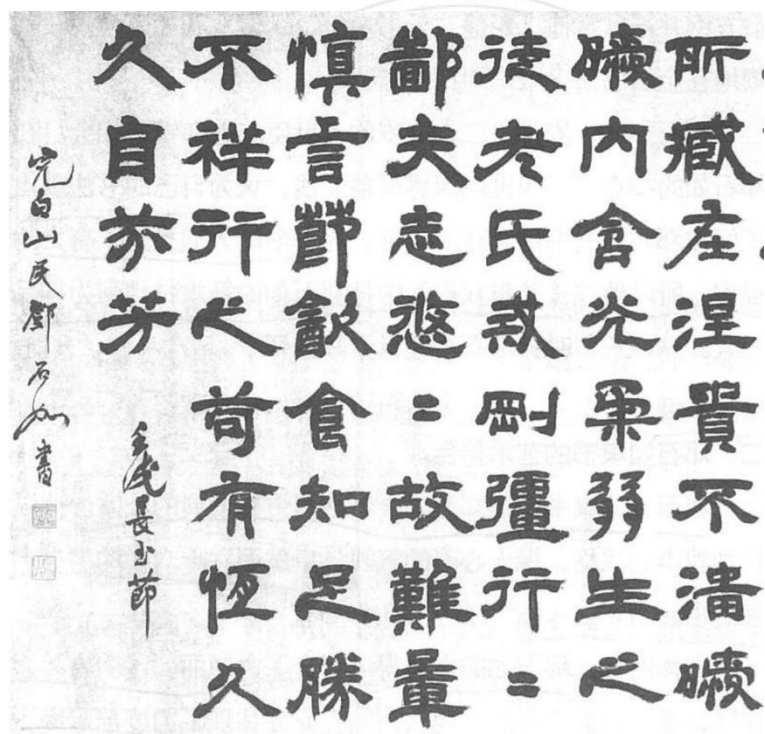 所臧在涅貴不淄曖
曖內含光柔弱生之
徒老氏戒剛彊行〻
鄙夫志悠〻故難量
慎言節㱃食知足勝
不祥行之苟有恆久
久自芬芳
長節
完白山民鄧石如書